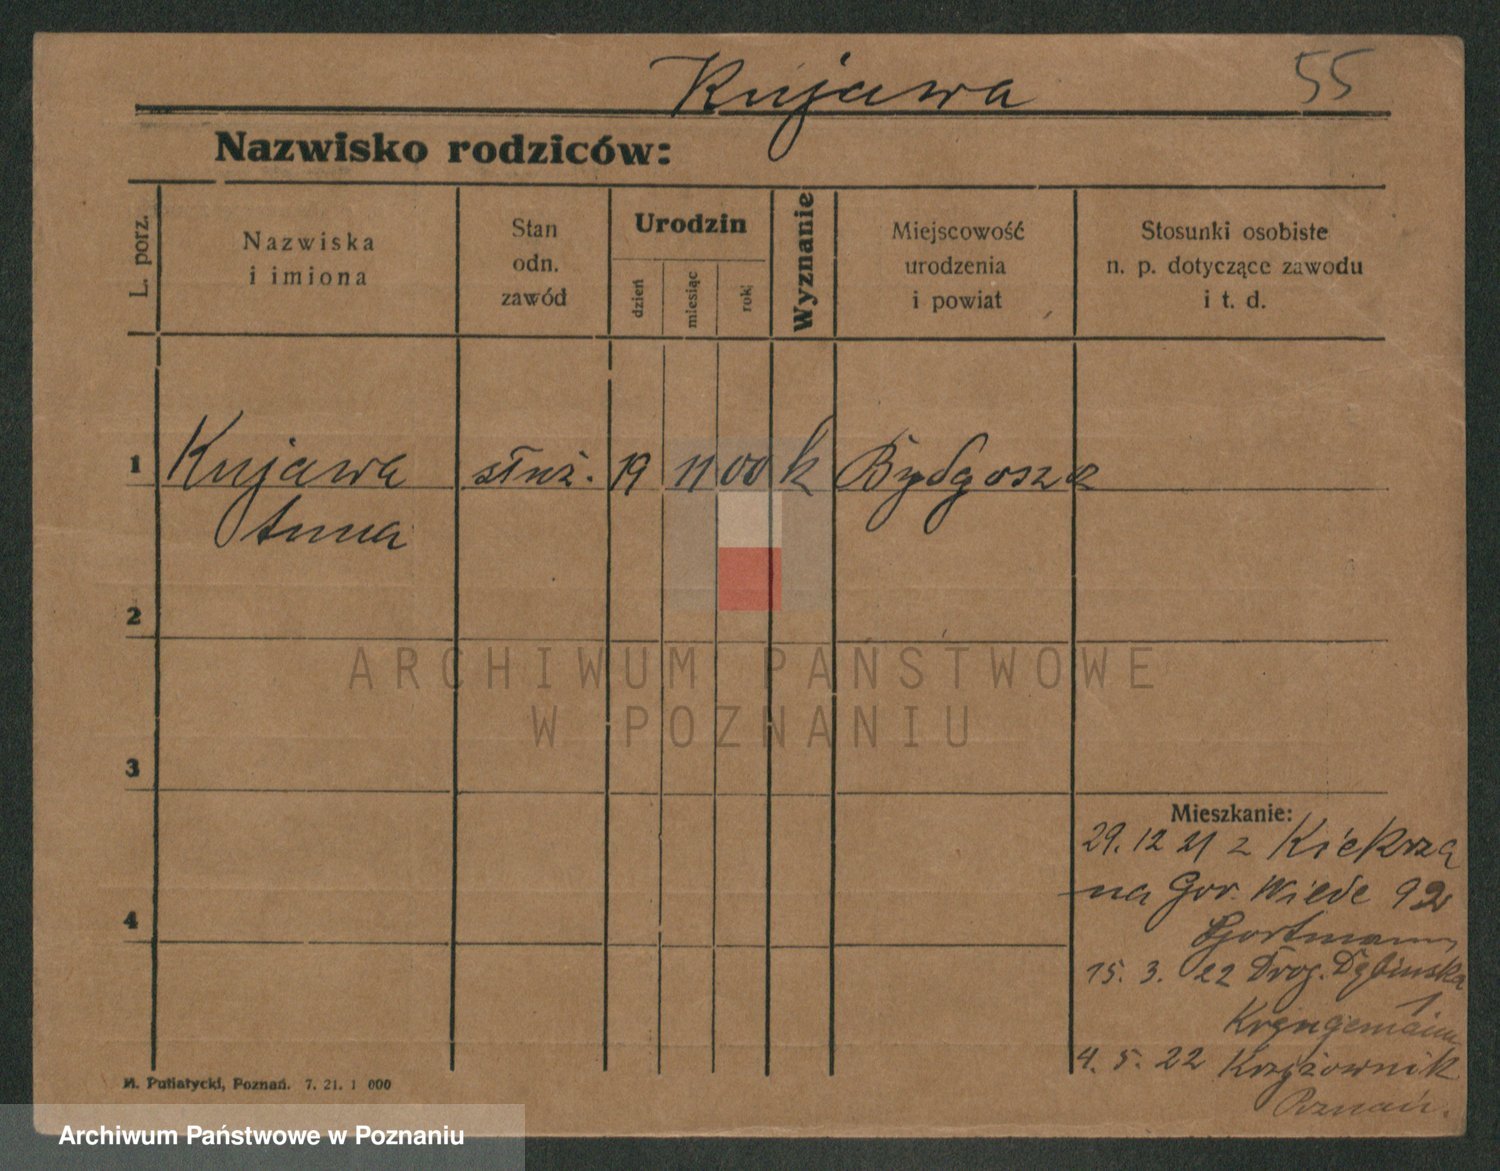 Kujawa 55
Nazwisko rodziców:
L. porz.
Nazwiska
i imiona
Stan
odn.
zawód
Urodzin
dzień
miesiąc
rok
Wyznanie
Miejscowość
urodzenia
i powiat
Stosunki osobiste
n. p. dotyczące zawodu
i t. d.
1 Kujawa służ. 19 11 00 k Bydgoszcz
Anna
2
ARCHIWUM PAŃSTWOWE
W POZNANIU
3
Mieszkanie:
29.12 21 z Kiekrza
na Gór. Wilde 92
15. 3. 22 Drog. Dębinska
1
4. 5. 22 Krzyżownik
Poznań.
4
M. Putiatycki, Poznań. 7. 21. 1 000
Archiwum Państwowe w Poznaniu